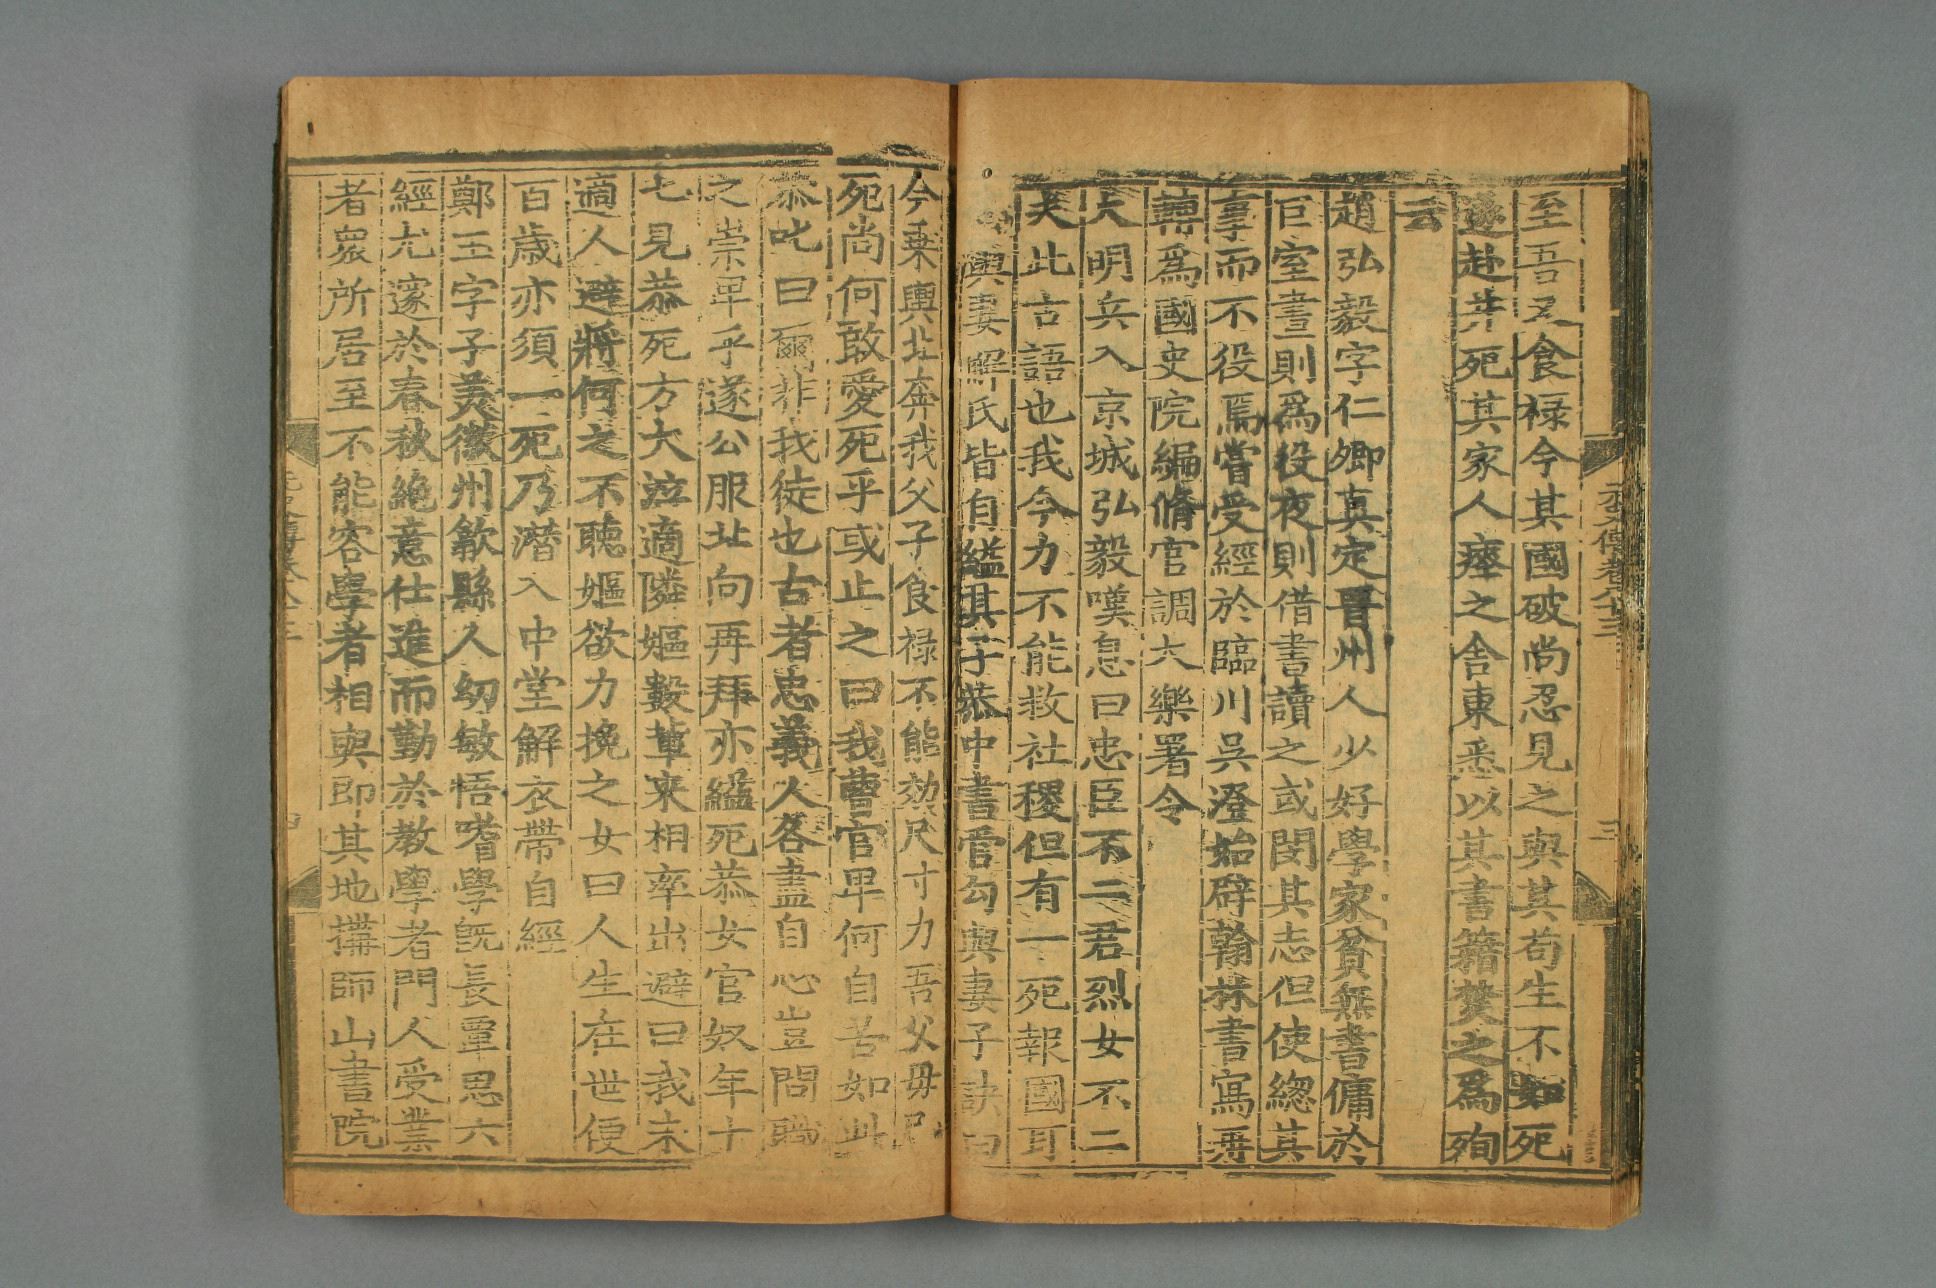 至吾又食禄今其國破尚忍見之與其苟生不如死
遂赴井死其家人瘞之舍東悉以其書籍焚之爲殉
云
趙弘毅字仁卿真定晉州人少好學家貧無書傭於
巨室晝則爲役夜則借書讀之或閔其志但使總其
事而不役焉嘗受經於臨川吳澄始辟翰林書寫再
轉爲國史院編脩官調大樂署令
大明兵入京城弘毅嘆息曰忠臣不二君烈女不二
夫此古語也我今力不能救社稷但有一死報國耳
與妻解氏皆自縊其子恭中書管勾與妻子訣曰
今乗輿北奔我父子食禄不能効尺寸力吾父毋已
死尚何敢愛死乎或止之曰我曹官卑何自苦如此
恭叱曰爾非我徒也古者忠義人各盡自心豈問職
之崇卑乎遂公服北向再拜亦縊死恭女官奴年十
七見恭死方大泣適隣嫗數輩來相率出避曰我未
適人避將何之不聽嫗欲力挽之女曰人生在世便
百歲亦須一死乃潛入中堂解衣帶自經
鄭玉字子美徽州歙縣人幼敏悟嗜學旣長覃思六
經尤邃於春秋絶意仕進而勤於教學者門人受業
者衆所居至不能容學者相與即其地搆師山書院
元史傳卷八十三
三
四